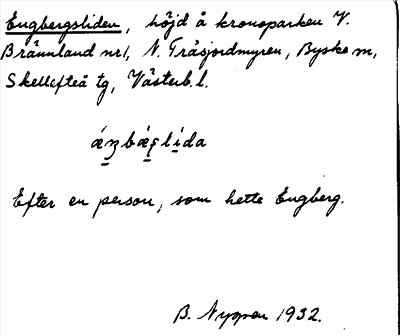 Engbergsliden, höjd å kronoparken V.
Brännland nr1, N. Träsjordmyren, Byske m,
Skellefteå tg, Västerb. l.
Efter en person, som hette Engberg.
B. Nygren 1932.